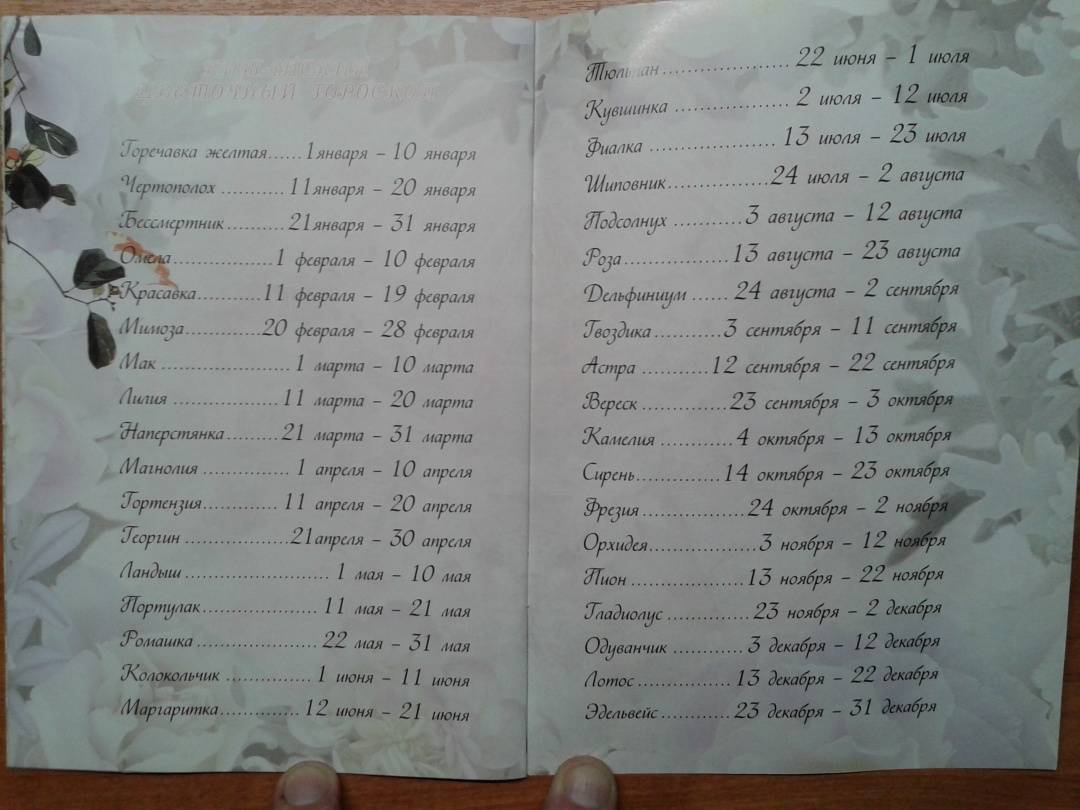 ЦВЕТОЧНЫЙ ГОРОСКОП
Горечавка желтая......1января – 10 января
Чертополох ...........11января – 20 января
Бессмертник..........21января – 31 января
Омела..................1 февраля – 10 февраля
Красавка............11 февраля – 19 февраля
Мимоза..............20 февраля – 28 февраля
Мак .......................1 марта – 10 марта
Лилия ...................11 марта – 20 марта
Наперстянка.........21 марта – 31 марта
Магнолия ...............1 апреля – 10 апреля
Гортензия ..............11 апреля – 20 апреля
Георгин ...................21апреля – 30 апреля
Ландыш ..........................1 мая – 10 мая
Портулак .....................11 мая – 21 мая
Ромашка ......................22 мая – 31 мая
Колокольчик ................1 июня – 11 июня
Маргаритка...............12 июня – 21 июня
Тюльпан......................22 июня – 1 июля
Кувшинка ....................2 июля – 12 июля
Фиалка ......................13 июля – 23 июля
Шиповник..................24 июля – 2 августа
Подсолнух ............3 августа – 12 августа
Роза...................13 августа – 23 августа
Дельфиниум ......24 августа – 2 сентября
Гвоздика............3 сентября – 11 сентября
Астра ............12 сентября – 22 сентября
Вереск ...............23 сентября – 3 октября
Камелия ..............4 октября – 13 октября
Сирень....................14 октября – 23 октября
Фрезия .......................24 октября – 2 ноября
Орхидея....................3 ноября – 12 ноября
Пион .......................13 ноября – 22 ноября
Гладиолус ..................23 ноября – 2 декабря
Одуванчик ................3 декабря – 12 декабря
Лотос ....................13 декабря – 22 декабря
Эдельвейс ...............23 декабря – 31 декабря